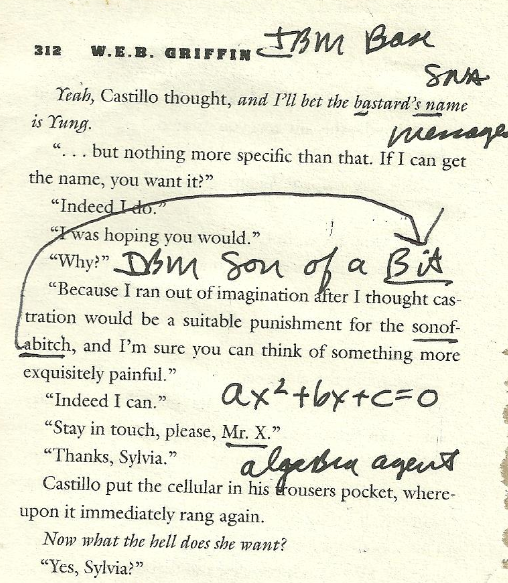 312 W.E.B. GRIFFIN IBM Base
SNA
Yeah, Castillo thought, and I'll bet the bastard's name
is Yung.
message
“. . . but nothing more specific than that. If I can get
the name, you want it?”
“Indeed I do.”
“I was hoping you would.”
“Why?” IBM Son of a Bit
“Because I ran out of imagination after I thought cas-
tration would be a suitable punishment for the sonof-
abitch, and I'm sure you can think of something more
exquisitely painful.”
“Indeed I can.” ax²+bx+c=0
“Stay in touch, please, Mr. X.”
“Thanks, Sylvia.” algebra agent
Castillo put the cellular in his trousers pocket, where-
upon it immediately rang again.
Now what the hell does she want?
“Yes, Sylvia?”